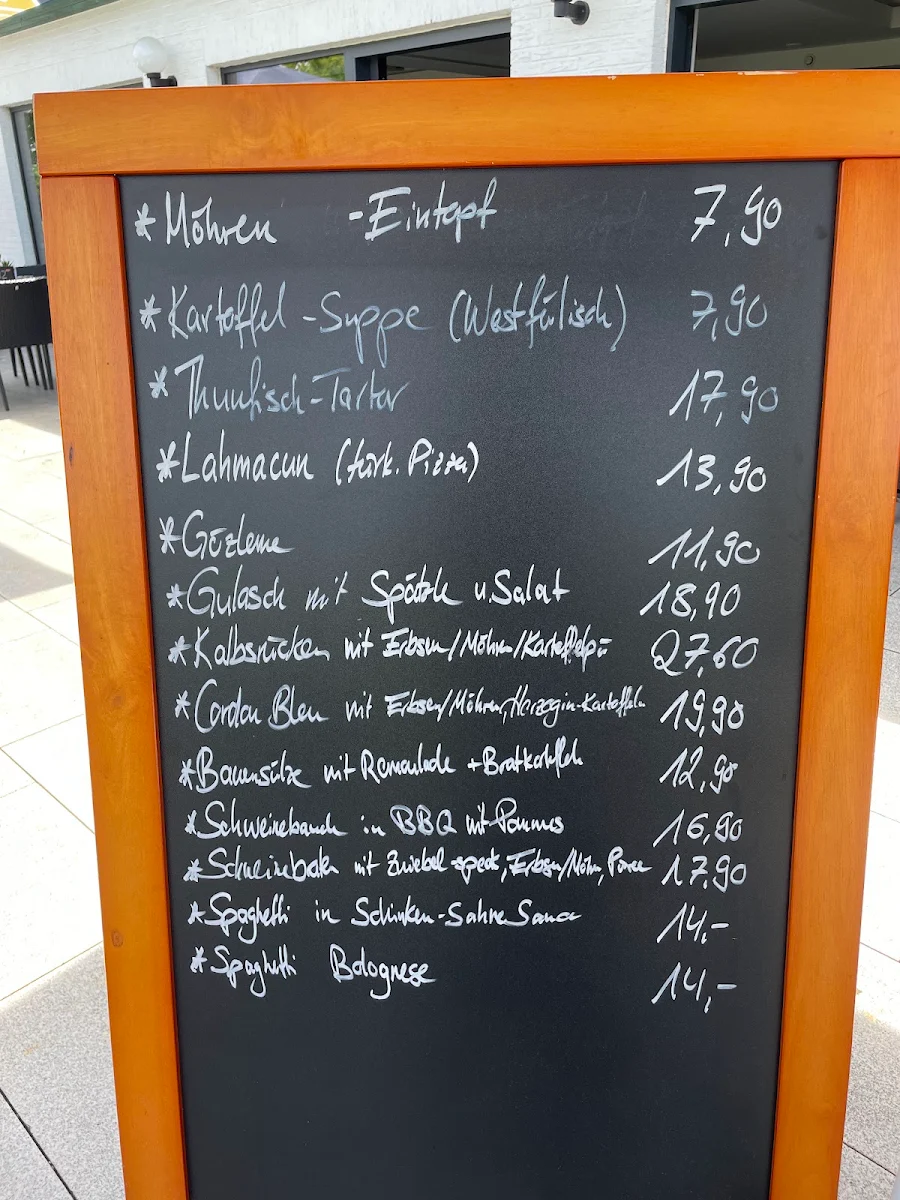 *Möhren -Eintopf 7,90
*Kartoffel-Suppe (Westfälisch) 7,90
*Thunfisch-Tartar 17,90
*Lahmacun (türk. Pizza) 13,90
*Gözleme 11,90
*Gulasch mit Spätzle u. Salat 18,90
*Kalbsrücken mit Erbsen/Möhren/Kartoffelpü 27,60
*Cordon Bleu mit Erbsen/Möhren, Herzogin-Kartoffeln 19,90
*Bauernsülze mit Remoulade + Bratkartoffeln 12,90
*Schweinebauch in BBQ mit Pommes 16,90
*Schweinebacken mit Zwiebel-speck, Erbsen/Möhren, Püree 17,90
*Spaghetti in Schinken-Sahne Sauce 14,-
*Spaghetti Bolognese 14,-